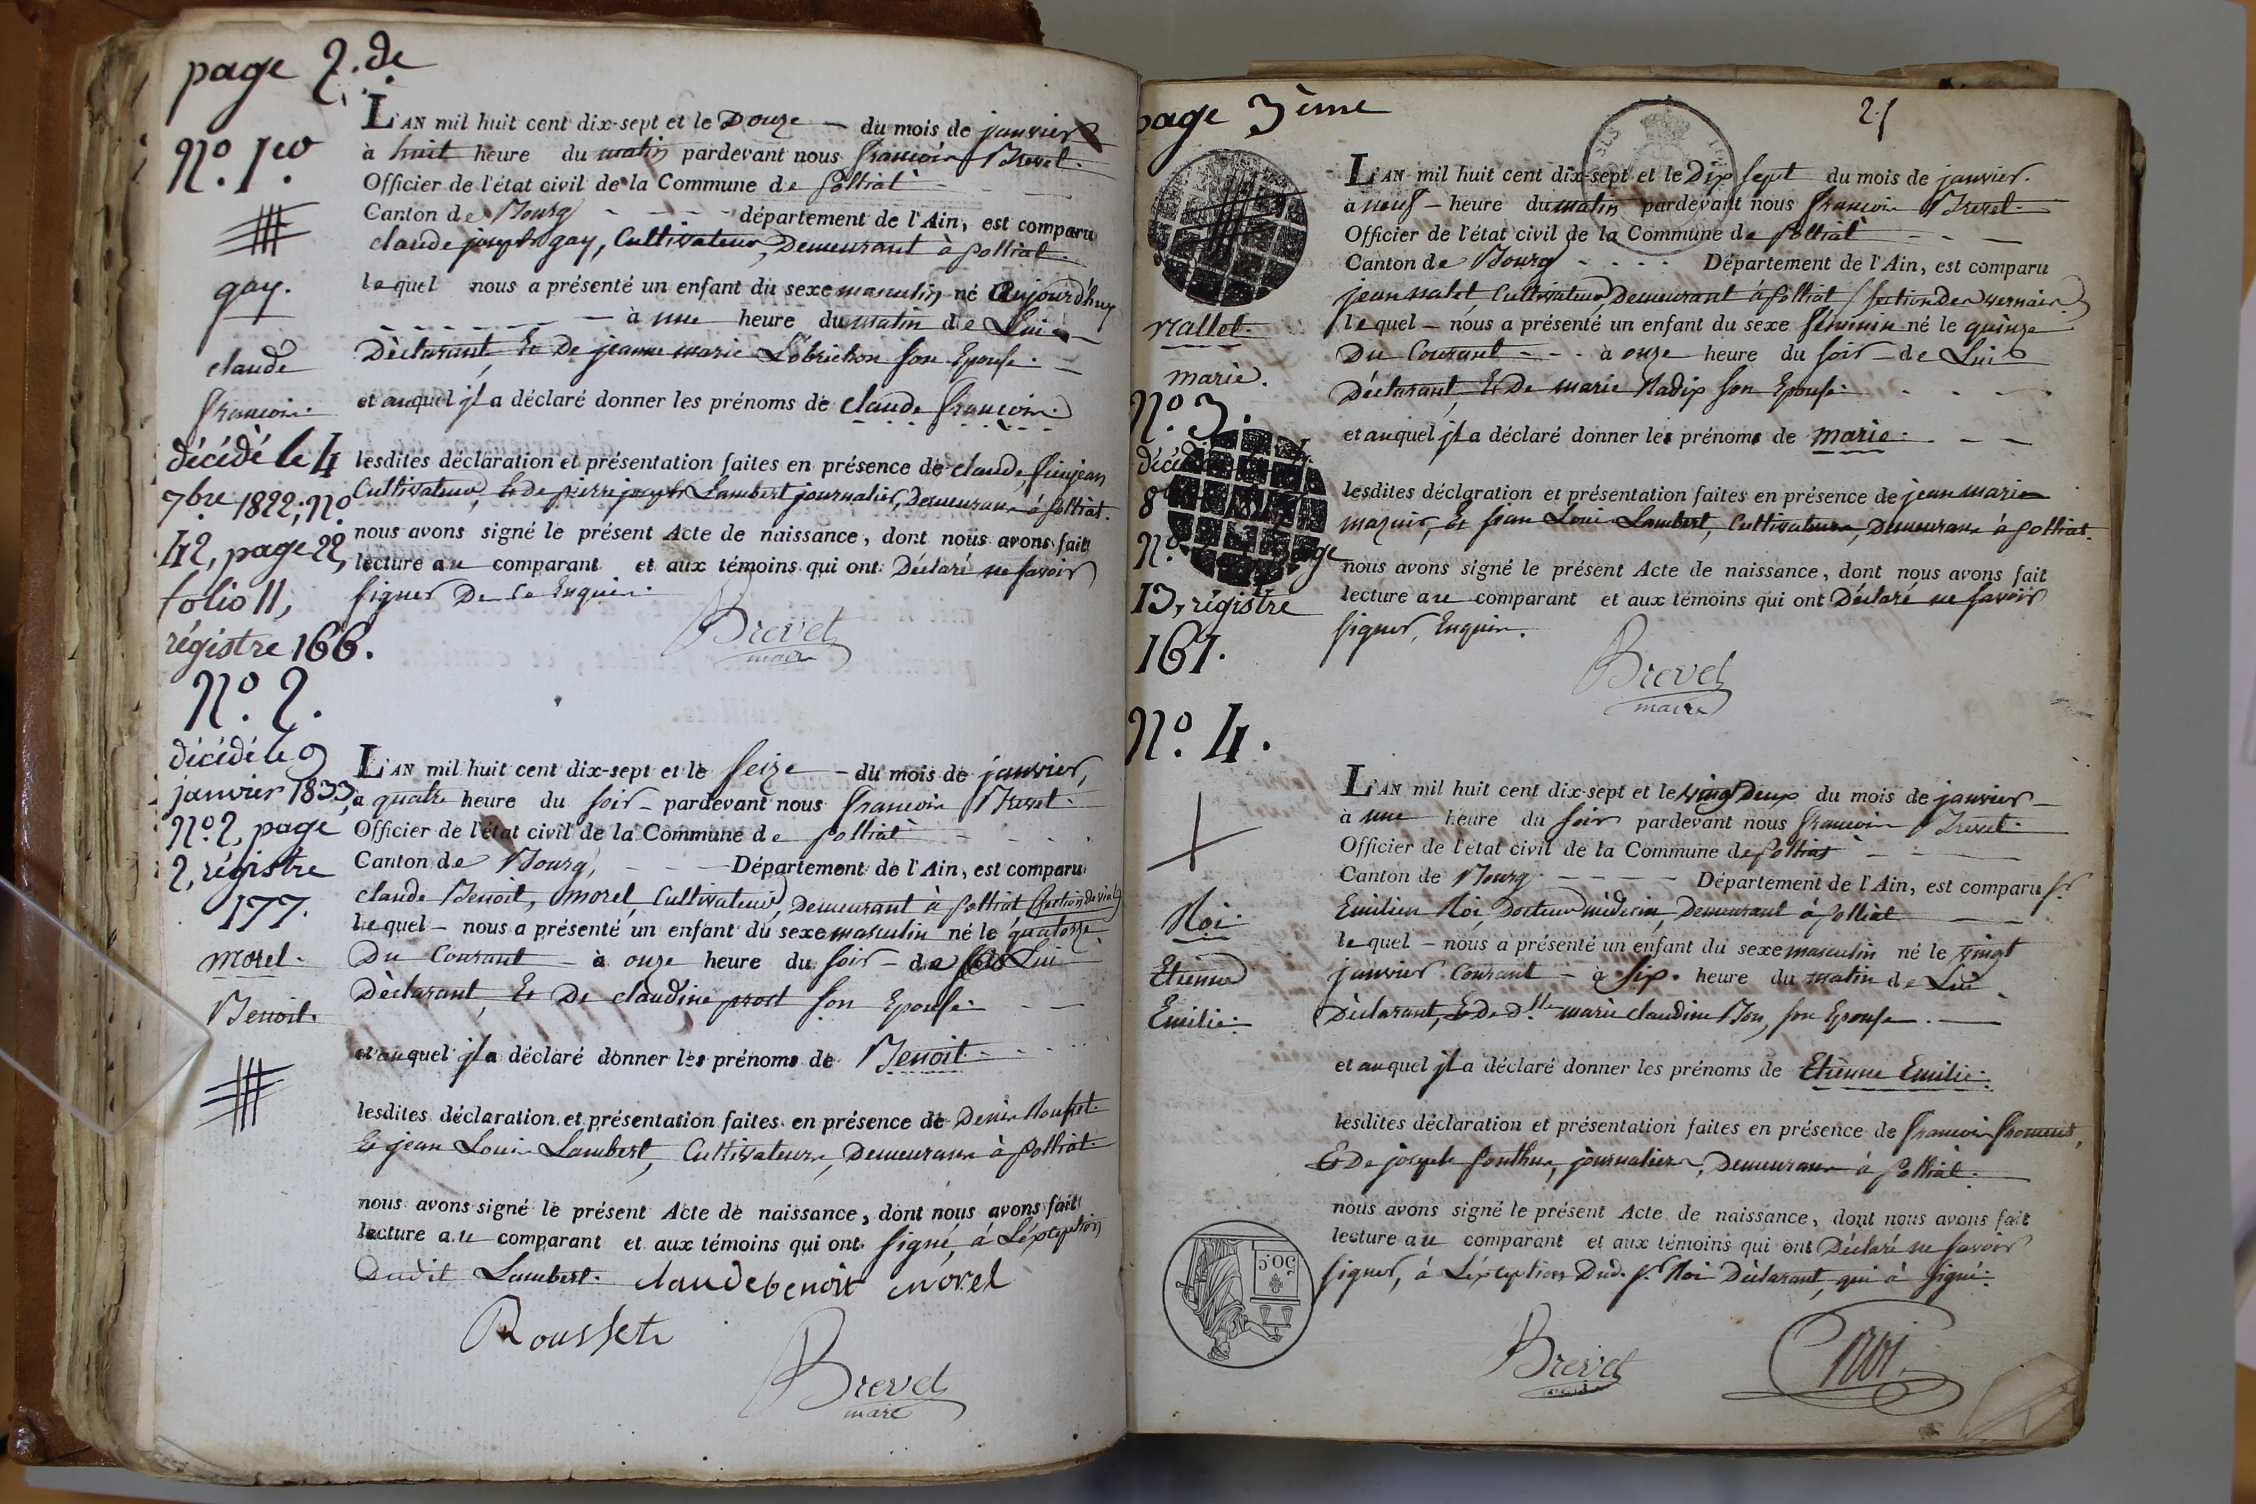 page 2.de
N.º 1.er
gay.
claude
françois.
décédé le 4
7bre 1822; Nº
42, page 22,
folio 11,
régistre 166.
L'AN mil huit cent dix-sept et le Douze du mois de janvier
à huit heure du matin pardevant nous françois Brevet.
Officier de l'état civil de la Commune de Polliat
Canton de Bourg département de l'Ain, est comparu
claude joseph gay, Cultivateur, Demeurant à Polliat.
lequel nous a présenté un enfant du sexe masculin né aujourd'huy
à une heure du matin de Lui
Déclarant, Et De jeanne marie Son Epouse.
et auquel jl a déclaré donner les prénoms de claude françois.
lesdites déclaration et présentation faites en présence de claude
Cultivateur, Et De pierre joseph Lambert journalier, Demeurans à Polliat.
nous avons signé le présent Acte de naissance, dont nous avons fait
lecture au comparant et aux témoins qui ont Déclaré ne Savoir
Signer De ce Enquis.
Brevet
maire
Nº. 2.
décédé le 9
janvier 1833,
Nº. 2, page
2, régistre
177.
morel.
Benoit.
L'AN mil huit cent dix-sept et le Seize du mois de janvier,
à quatre heure du Soir pardevant nous françois Brevet.
Officier de l'état civil de la Commune de Polliat
Canton de Bourg, Département de l'Ain, est comparu
claude Benoit, morel, Cultivateur, Demeurant à Polliat
lequel nous a présenté un enfant du sexe masculin né le quatorze
Du Courant à onze heure du Soir de Lui
Déclarant, Et De claudine prost Son Epouse.
et auquel jl a déclaré donner les prénoms de Benoit
lesdites déclaration et présentation faites en présence de Denis Rousset.
Et jean Louis Lambert, Cultivateurs, Demeurans à Polliat
nous avons signé le présent Acte de naissance, dont nous avons fait
lecture au comparant et aux témoins qui ont Signé, à L'éxception
Dudit Lambert. claude benoit morel
Rousset
Brevet
maire
page 3ème
2.
vallet.
marie.
Nº. 3.
13, régistre
161.
L'AN mil huit cent dix-sept et le Dix Sept du mois de janvier.
à neuf heure du matin pardevant nous françois Brevet.
Officier de l'état civil de la Commune de Polliat
Canton de Bourg Département de l'Ain, est comparu
jean vallet, Cultivateur, Demeurant à Polliat
lequel nous a présenté un enfant du sexe féminin né le quinze
Du Courant à onze heure du Soir de Lui
Déclarant, Et De marie Radix Son Epouse.
et auquel jl a déclaré donner les prénoms de marie.
lesdites déclaration et présentation faites en présence de jean marie
mazuir, Et jean Louis Lambert, Cultivateurs, Demeurans à Polliat.
nous avons signé le présent Acte de naissance, dont nous avons fait
lecture au comparant et aux témoins qui ont Déclaré ne Savoir
Signer, Enquis.
Brevet
maire
Nº. 4.
Roi.
Etienne
Emilie.
L'AN mil huit cent dix-sept et le vingt Deux du mois de janvier
à une heure du Soir pardevant nous françois Brevet.
Officier de l'état civil de la Commune de Polliat
Canton de Bourg Département de l'Ain, est comparu Sr.
Emilien Roi, Docteur médecin, Demeurant à Polliat
lequel nous a présenté un enfant du sexe masculin né le vingt
janvier Courant à Six heure du matin de Lui
Déclarant, Et De Dlle marie claudine Bon, Son Epouse.
et auquel jl a déclaré donner les prénoms de Etienne Emilie.
lesdites déclaration et présentation faites en présence de françois froment,
Et De joseph Ponthus, journaliers, Demeurans à Polliat.
nous avons signé le présent Acte de naissance, dont nous avons fait
lecture au comparant et aux témoins qui ont Déclaré ne Savoir
Signer, à L'éxception Dud. Sr. Roi Déclarant, qui à Signé.
Brevet
maire
Roi
50 C.